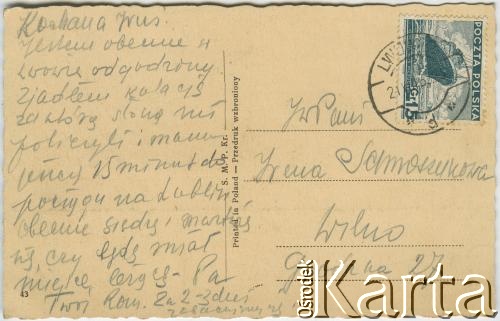 Kochana Iruś.
Jestem obecnie w
Lwowie od godziny
Zjadłem kolację
za którą słono
policzyli i mam
jeszcze 15 minut do
pociągu na Lublin
obecnie siedzę i martwię
się czy będę miał
miejsce leżące. Pa
Twój Rom. Za 2-3 dni
43
S. M. p. Kr.
Printed in Poland — Przedruk wzbroniony
POCZTA POLSKA
15 GR
LWÓW
W Pani
Irena
Wilno
27
Ośrodek
Karta